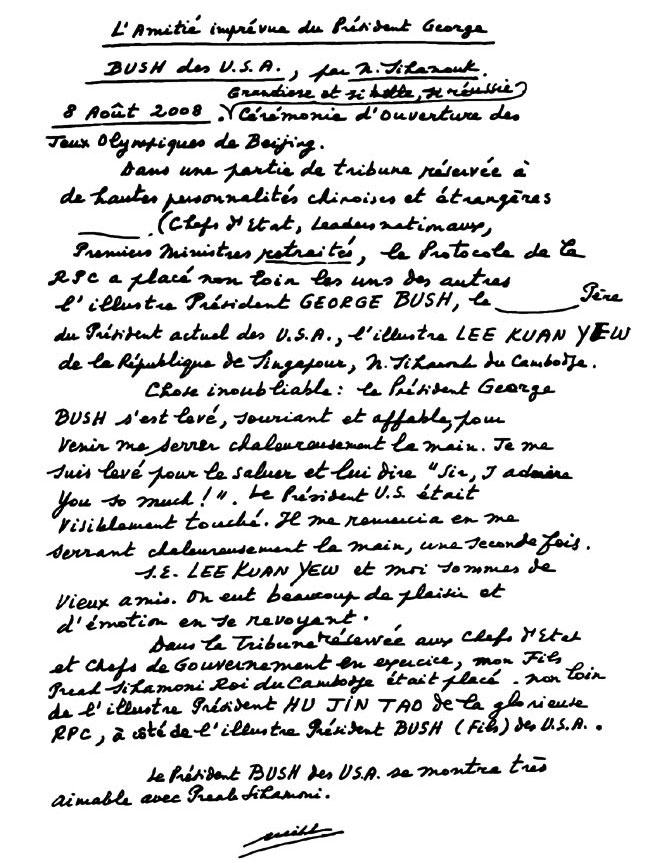 L'Amitié imprévue du Président George
BUSH des U.S.A., par N. Sihanouk.
Grandiose et si belle, si réussie
8 Août 2008. Cérémonie d'Ouverture des
Jeux Olympiques de Beijing.
Dans une partie de tribune réservée à
de hautes personnalités chinoises et étrangères
(Chefs d'Etat, Leaders nationaux,
Premiers Ministres retraités, le Protocole de la
RPC a placé non loin les uns des autres
l'illustre Président GEORGE BUSH, le Père
du Président actuel des U.S.A., l'illustre LEE KUAN YEW
de la République de Singapour, N. Sihanouk du Cambodge.
Chose inoubliable : le Président George
BUSH s'est levé, souriant et affable, pour
venir me serrer chaleureusement la main. Je me
suis levé pour le saluer et lui dire "Sir, I admire
You so much !". Le Président U.S. était
visiblement touché. Il me remercia en me
serrant chaleureusement la main, une seconde fois.
S.E. LEE KUAN YEW et moi sommes de
vieux amis. On eut beaucoup de plaisir et
d'émotion en se revoyant.
Dans la Tribune réservée aux Chefs d'Etat
et Chefs de Gouvernement en exercice, mon Fils
Preah Sihamoni Roi du Cambodge était placé non loin
de l'illustre Président HU JIN TAO de la glorieuse
RPC, à côté de l'illustre Président BUSH (Fils) des U.S.A..
Le Président BUSH des USA. se montra très
aimable avec Preah Sihamoni.